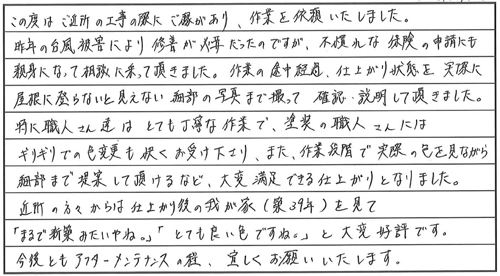 この度はご近所の工事の際にご縁があり、作業を依頼いたしました。
昨年の台風被害により修善が必要だったのですが、不慣れな保険の申請にも
親身になって相談に乗って頂きました。作業の途中経過、仕上がり状態を実際に
屋根に登らないと見えない細部の写真まで撮って確認・説明して頂きました。
特に職人さん達はとても丁寧な作業で、塗装の職人さんには
ギリギリでの色変更も快くお受け下さり、また、作業段階で実際の色を見ながら
細部まで提案して頂けるなど、大変満足できる仕上がりとなりました。
近所の方々からは仕上がり後の我が家(築39年)を見て
「まるで新築みたいやね。」「とても良い色ですね。」と大変好評です。
今後ともアフターメンテナンスの程、宜しくお願いいたします。